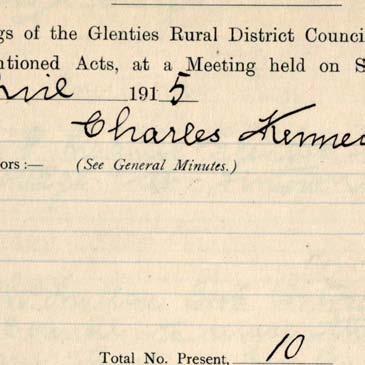 gs of the Glenties Rural District Counci
ntioned Acts, at a Meeting held on S
ril 1915
Charles Kenned
ors :— (See General Minutes.)
Total No. Present, 10